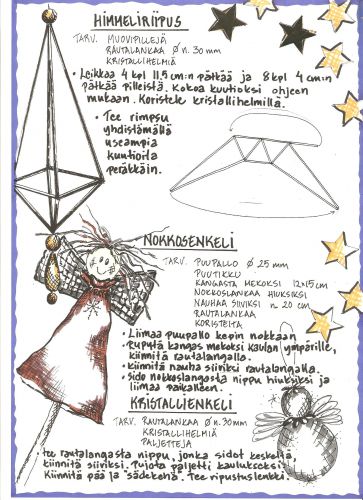 HIMMELIRIIPUS
TARV. MUOVIPILLEJÄ
RAUTALANKAA Ø n. 30 mm
KRISTALLIHELMIÄ
• Leikkaa 4 kpl 11,5 cm:n pätkää ja 8 kpl 4 cm:n
pätkää pilleistä. Kokoa kuutioksi ohjeen
mukaan. Koristele kristallihelmillä.
• Tee rimpsu
yhdistämällä
useampia
kuutioita
peräkkäin.
NOKKOSENKELI
TARV. PUUPALLO Ø 25 mm
PUUTIKKU
KANGASTA MEKOKSI 12x15cm
NOKKOSLANKAA HIUKSIKSI
NAUHAA SIIVIKSI n. 20 cm
RAUTALANKAA
KORISTEITA
• Liimaa puupallo kepin nokkaan
• Rypytä kangas mekoksi kaulan ympärille,
kiinnitä rautalangalla.
• kiinnitä nauha siiviksi rautalangalla.
• Sido nokkoslangasta nippu hiuksiksi ja
liimaa paikalleen.
KRISTALLIENKELI
TARV. RAUTALANKAA Ø n. 30mm
KRISTALLIHELMIÄ
PALJETTEJA
• Tee rautalangasta nippu, jonka sidot keskeltä,
kiinnitä siiviksi. Pujota paljetti kaulukseksi.
Kiinnitä pää ja "sädekehä". Tee ripustuslenkki.